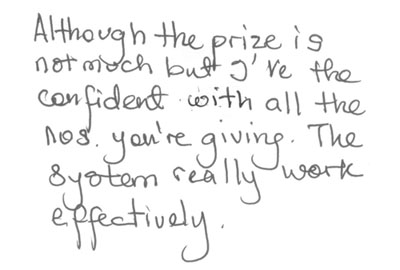 Although the prize is
not much but I've the
confident with all the
nos. you're giving. The
system really work
effectively.